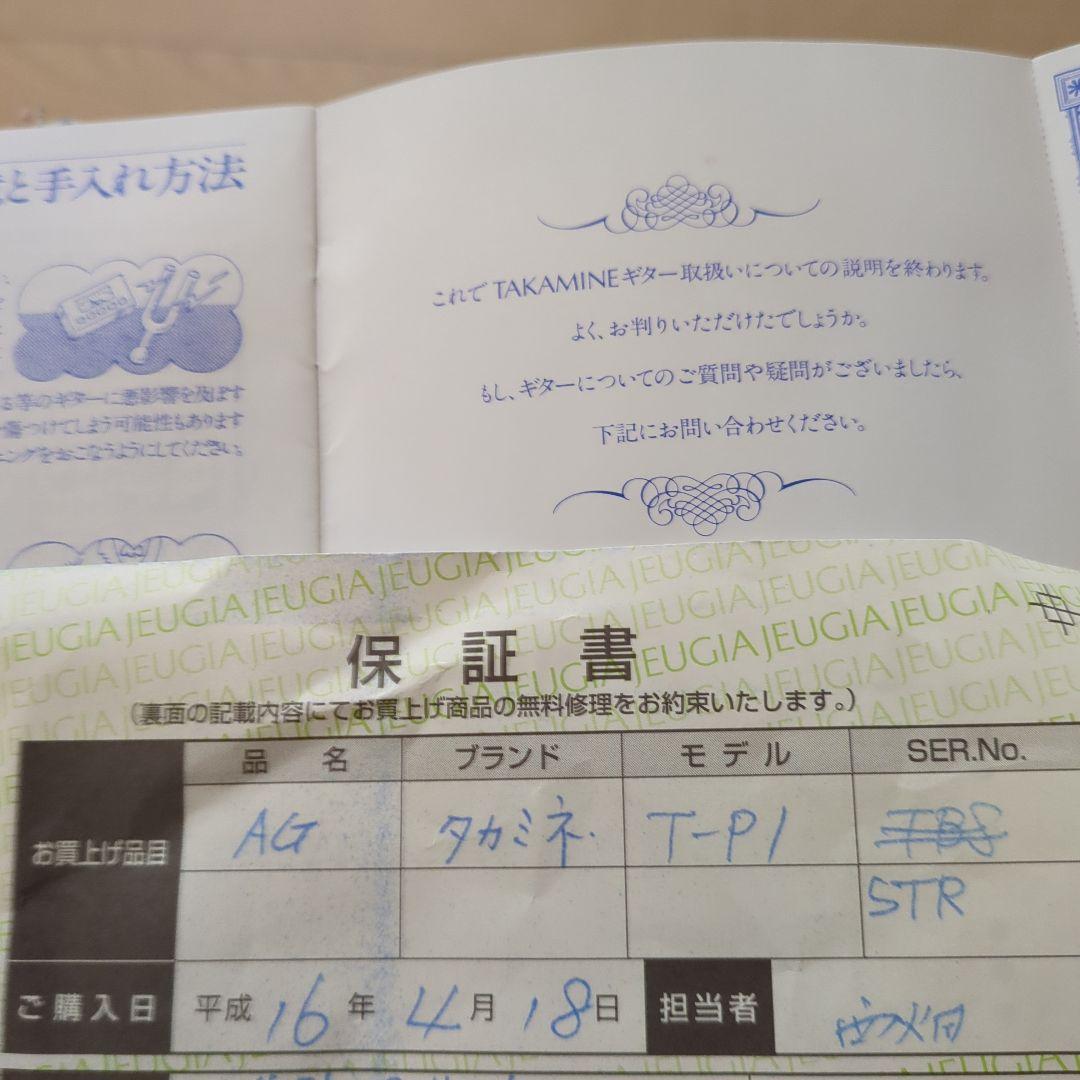 と手入れ方法
る等のギターに悪影響を及ぼす
傷つけてしまう可能性もあります
ニングをおこなうようにしてください。
これで TAKAMINEギター取扱いについての説明を終わります。
よく、お判りいただけたでしょうか。
もし、ギターについてのご質問や疑問がございましたら、
下記にお問い合わせください。
JEUGIA JEUGIA JEUGIA JEUGIA JEUGIA JEUGIA
保証書
(裏面の記載内容にてお買上げ商品の無料修理をお約束いたします。)
品名 ブランド モデル SER.No.
お買上げ品目 AG タカミネ. T-P1
STR
ご購入日 平成 16 年 4 月 18 日 担当者